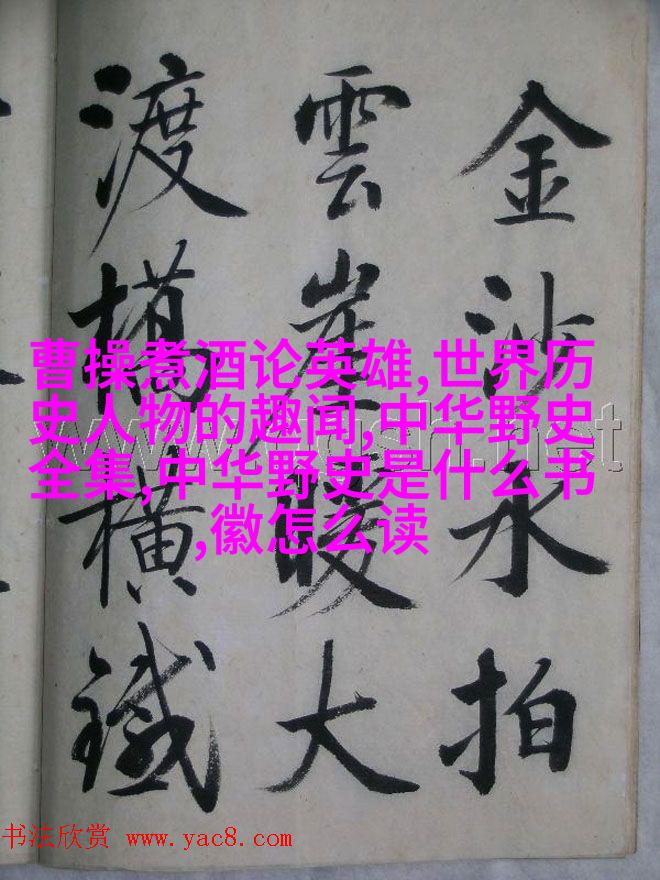 金沙水拍
雲崖暖大
渡橋横鐵
曹操煮酒论英雄,世界历
史人物的趣闻,中华野史
全集,中华野史是什么书
,徽怎么读
书法欣赏 www.yac8.com